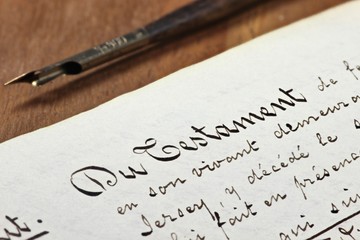 Du Testament de
en son vivant demeura
Jersey, y décédé le
fait en présence
qui
nt.